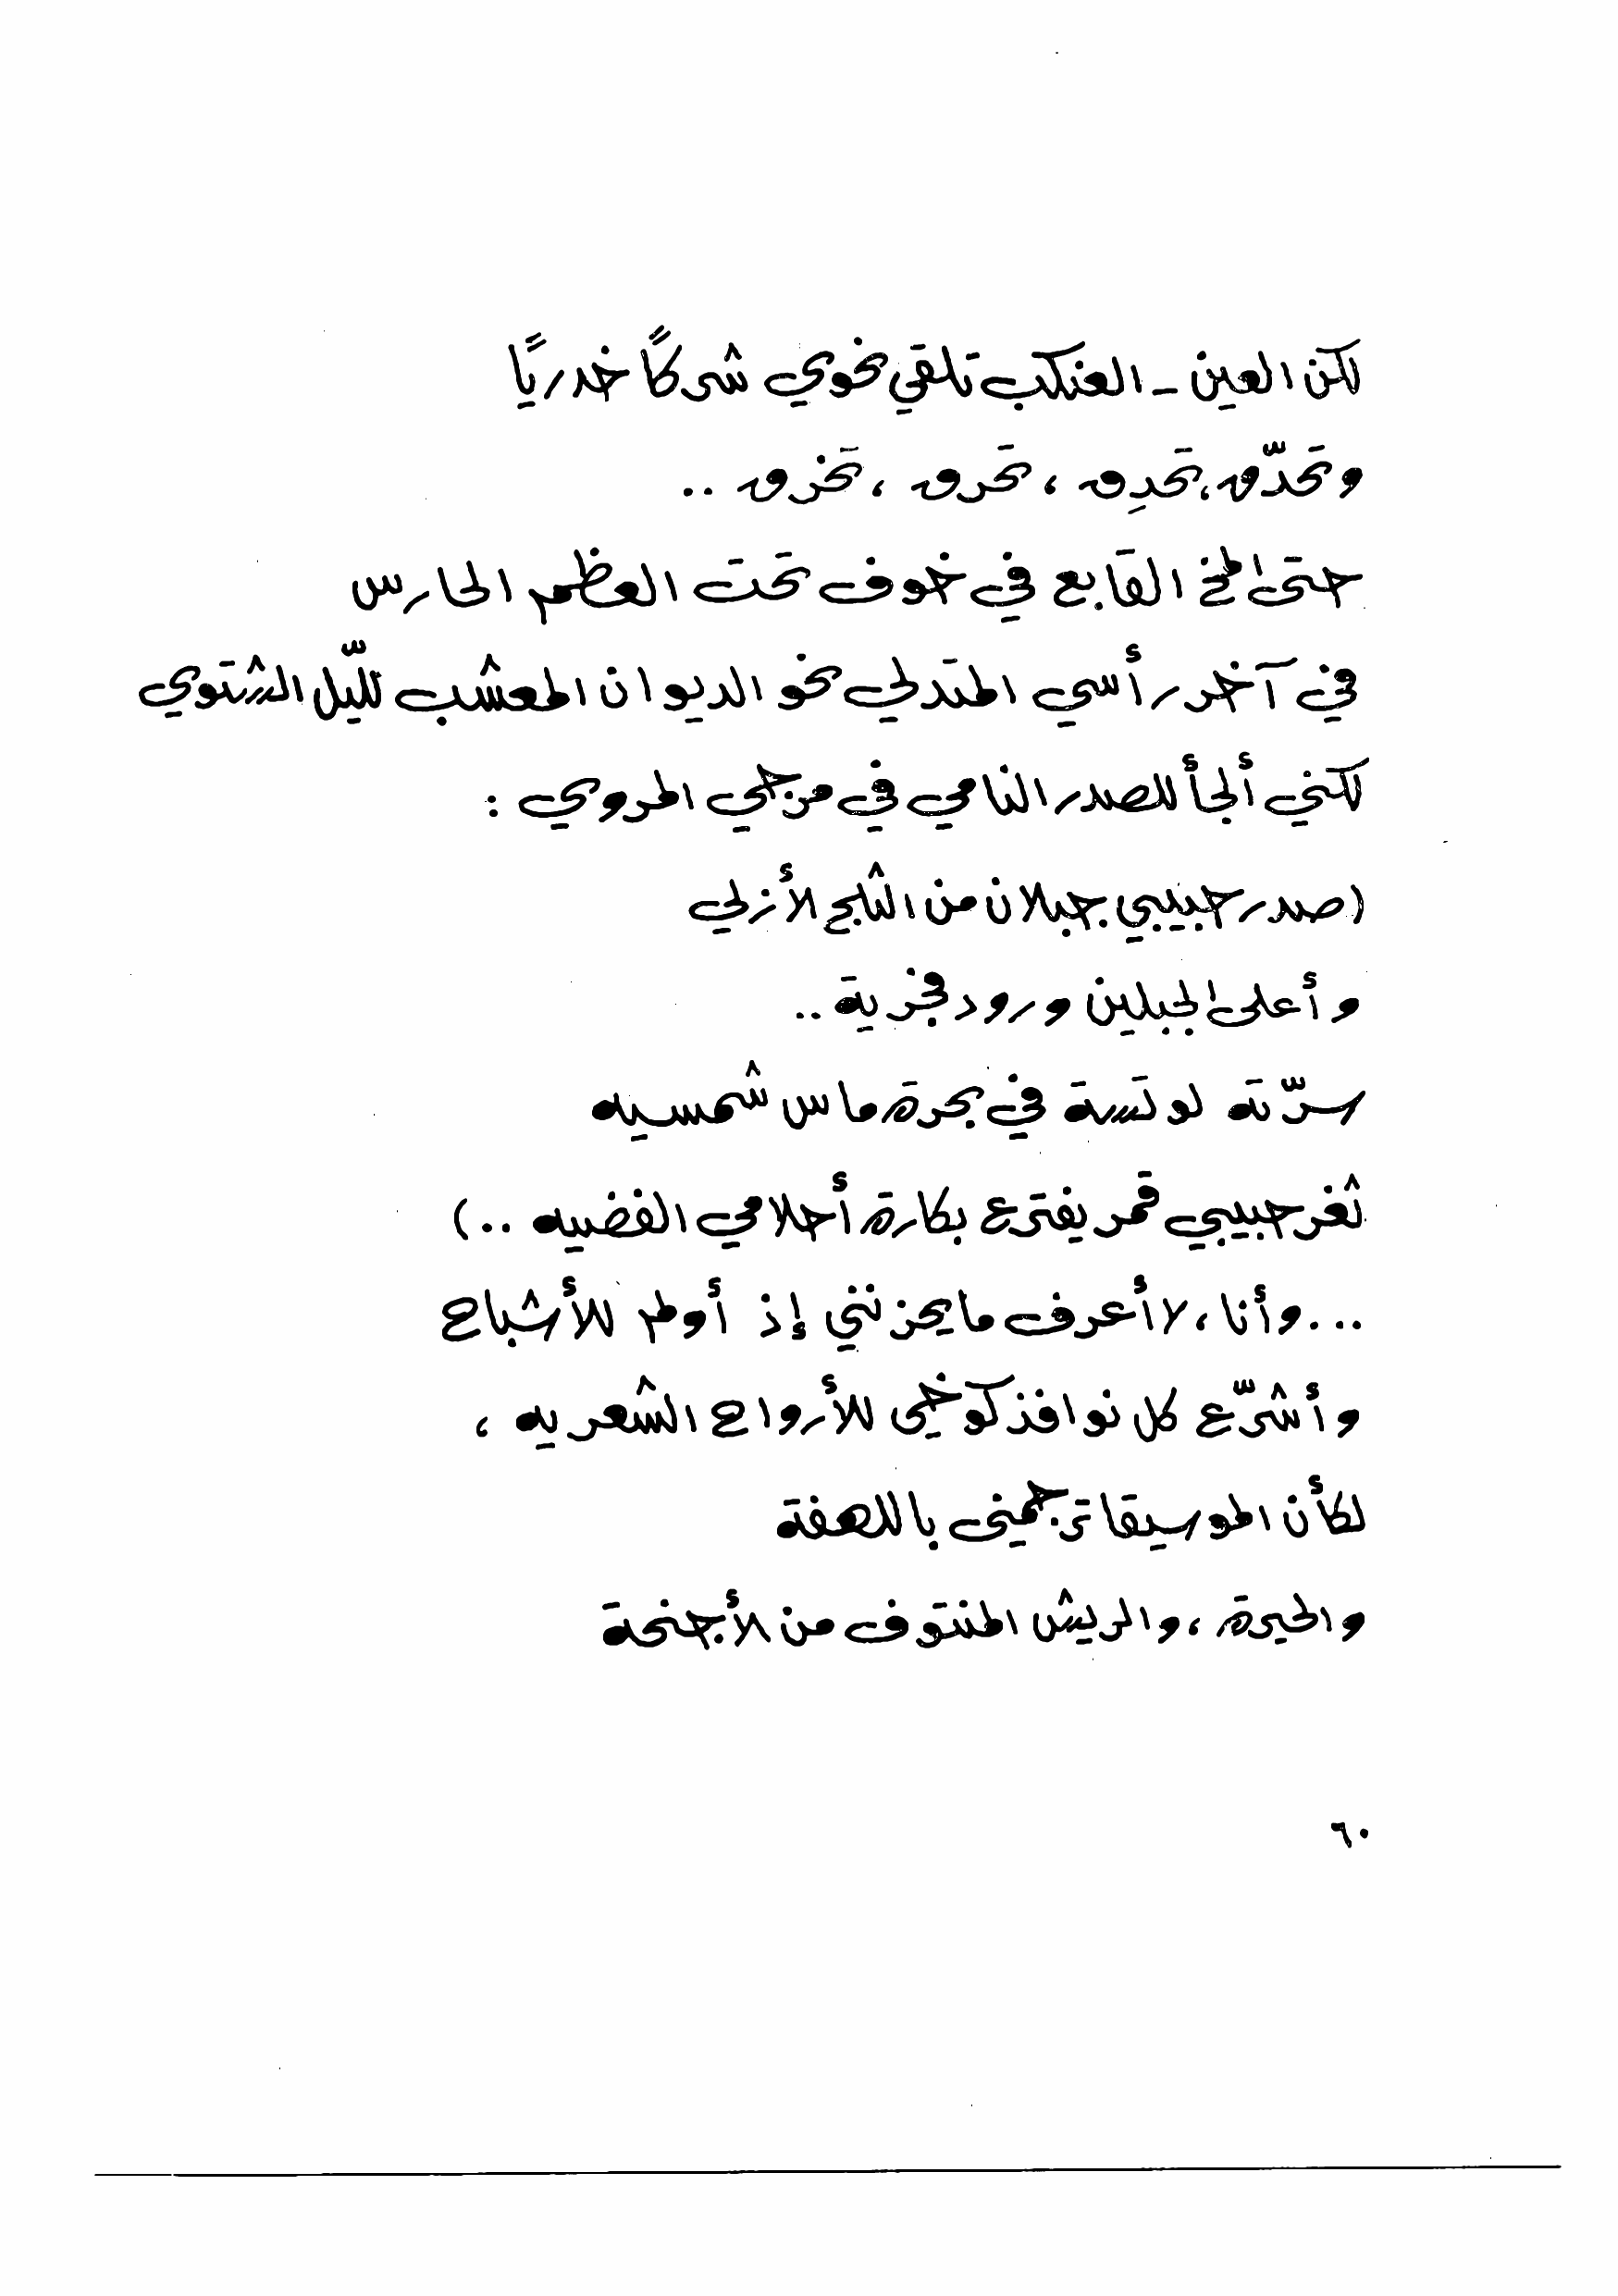 لكن العين - العنكب تلقي نحوي شركًا خدريًا
وتحدّق، تحدِق، تحرق، تخزق ..
حتى المخ القابع في خوف تحت العظم الحارس
في آخر رأسي المتدلي نحو الديوان المعشب لليّل الشتوي
لكنني ألجأ للصدر النامي في مرجي المروي :
(صدر حبيبي جبلان من الثلج الأزلي
وأعلى الجبلين ورود فجرية ..
سرّته لوتسة في بحرة ماس شمسيه
ثغر حبيبي قمر يفترع بكارة أحلامي الفضيه ..)
...وأنا، لا أعرف ما يحزنني إذ أولم للأشباح
وأشرّع كل نوافذ كوخي للأرواح الشعريه ،
لكأن الموسيقا ترجمني باللهفة
والحيرة، والريش المنتوف من الأجنحة
٦٠